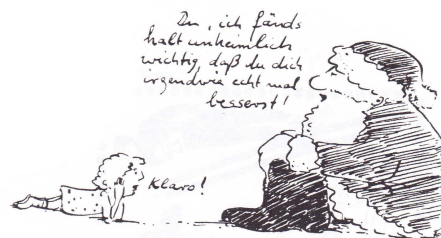 Du, ich fänds
halt unheimlich
wichtig, daß du dich
irgendwie echt mal
besserst!
Klaro!